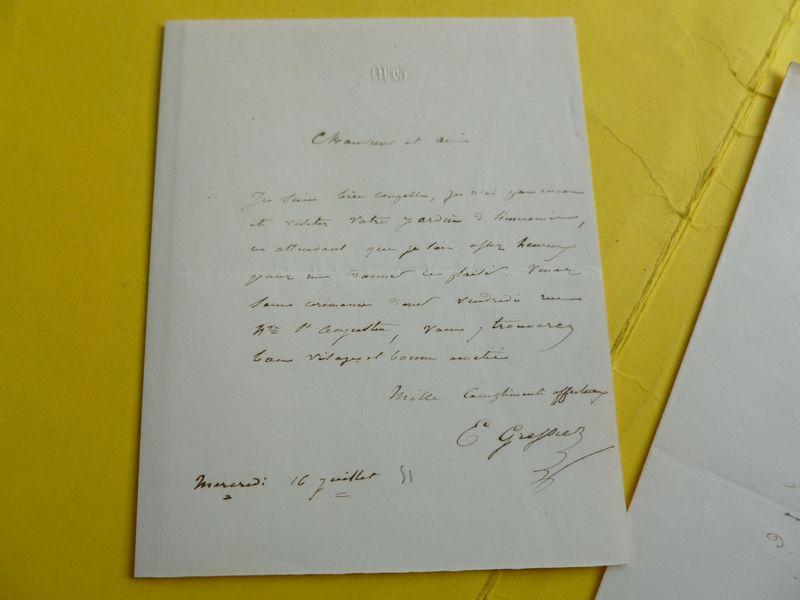 MG
Monsieur et ami
Je suis bien coupable, je n'ai pas encore
été visiter votre jardin d.
en attendant que je sois assez heureux
pour me donner ce plaisir. Venez
sans ceremonie diner vendredi rue
Nve St Augustin, vous y trouverez
bon visage et bonne amitié
Mille compliments affectueux
E Gressier
Mercredi 16 juillet 51